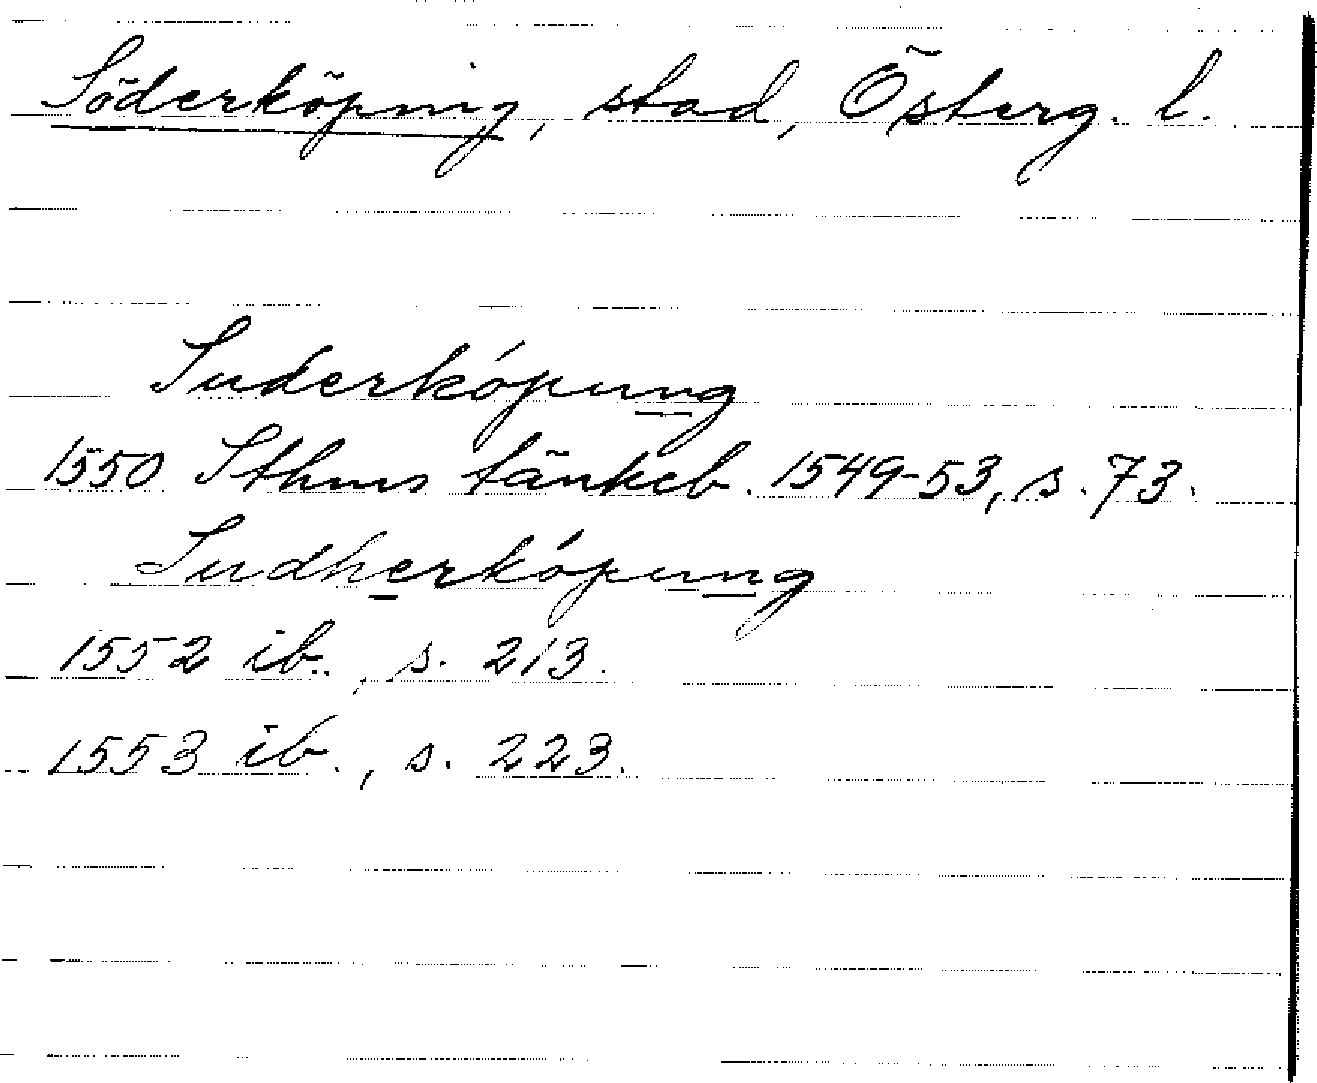 Söderköping, stad, Österg. l.
Suderkópung
1550 Sthms tänkeb. 1549-53, s. 73.
Sudherkópung
1552 ib., s. 213.
1553 ib., s. 223.